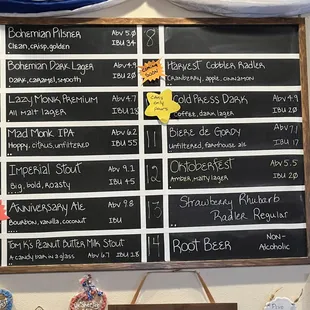 Bohemian Pilsner Abv 5.0
Clean, crisp, golden IBU 34
Bohemian Dark Lager Abv 4.9
Dark, caramel, smooth IBU 20
Lazy Monk Premium Abv 4.7
All malt lager IBU 18
Mad Monk IPA Abv 6.2
Hoppy, citrus, unfiltered IBU 55
Imperial Stout Abv 9.1
Big, bold, roasty IBU 45
Anniversary Ale Abv 9.8
Bourbon, vanilla, coconut IBU
Tom K's Peanut Butter Milk Stout
A candy bar in a glass Abv 6.7 IBU 18
8
Harvest Cobbler Radler
Cranberry, apple, cinnamon
Cold Press Dark Abv 4.9
Coffee, dark lager IBU 20
11
Biere de Gordy Abv 7.1
Unfiltered, farmhouse ale IBU 17
12
Oktoberfest Abv 5.5
Amber, malty lager IBU 20
13
Strawberry Rhubarb
Radler Regular
14
Root Beer Non-
Alcoholic